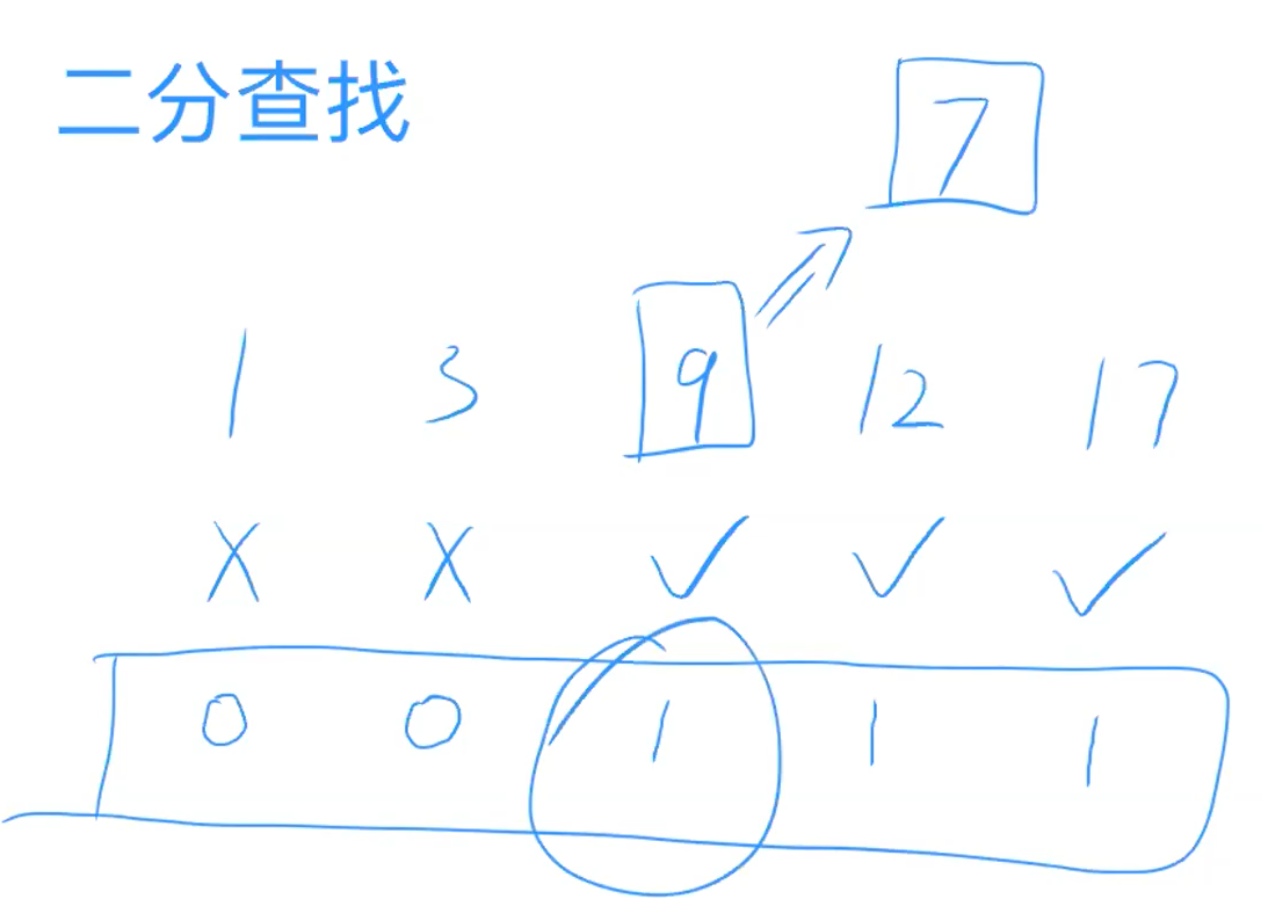 二分查找
7
1 3 9 12 17
X X ✓ ✓ ✓
0 0 1 1 1